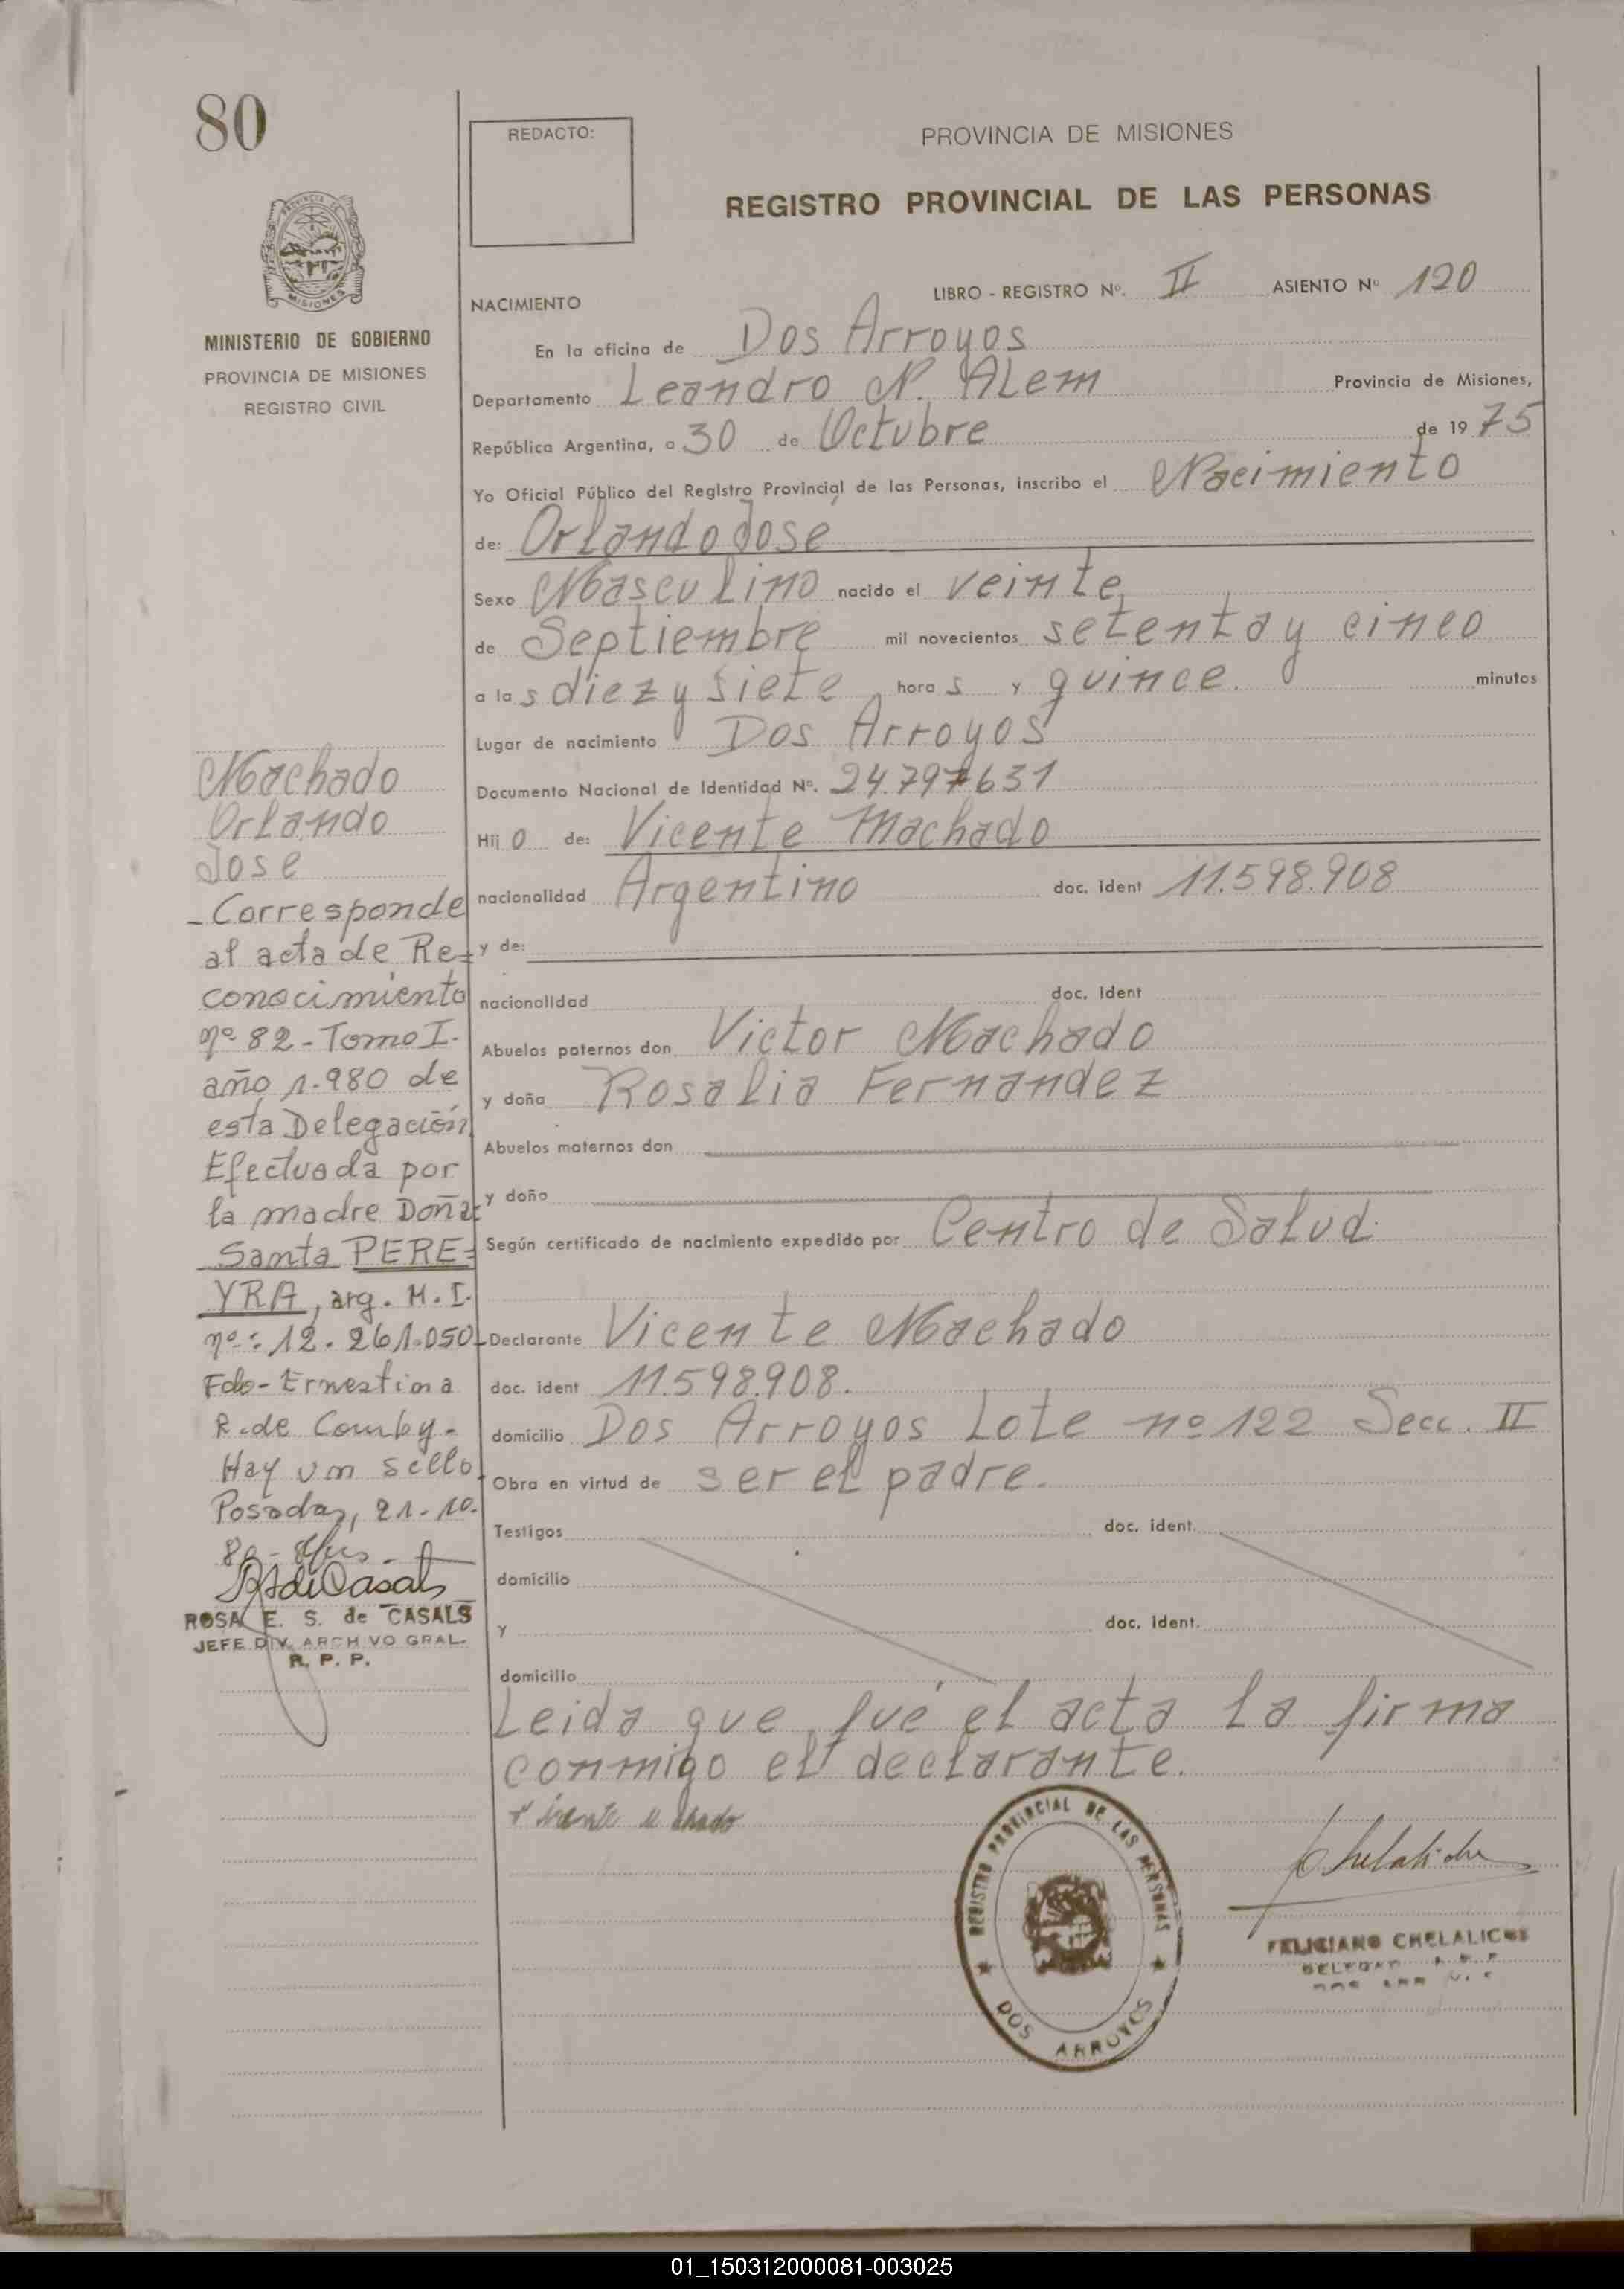 80
REDACTO:
PROVINCIA DE MISIONES
REGISTRO PROVINCIAL DE LAS PERSONAS
PROVINCIA DE
MISIONES
MINISTERIO DE GOBIERNO
PROVINCIA DE MISIONES
REGISTRO CIVIL
LIBRO - REGISTRO Nº. II ASIENTO Nº 120
NACIMIENTO
En la oficina de Dos Arroyos
Departamento Leandro N. Alem Provincia de Misiones,
República Argentina, a 30 de Octubre de 1975
Yo Oficial Público del Registro Provincial de las Personas, inscribo el Nacimiento
de: Orlando Jose
Sexo Masculino nacido el veinte
de Septiembre mil novecientos setenta y cinco
a las diez y siete horas y quince. minutos
Lugar de nacimiento Dos Arroyos
Documento Nacional de Identidad Nº. 24.797631
Hijo de: Vicente Machado
nacionalidad Argentino doc. ident 11.598.908
y de:
nacionalidad doc. ident
Abuelos paternos don Victor Machado
y doña Rosalia Fernandez
Abuelos maternos don
y doña
Según certificado de nacimiento expedido por Centro de Salud.
Declarante Vicente Machado
doc. ident 11.598.908.
domicilio Dos Arroyos Lote nº 122 Secc. II
Obra en virtud de ser el padre.
Testigos doc. ident.
domicilio
y doc. ident.
domicilio
Leida que fué el acta la firma
conmigo el declarante.
Machado
Orlando
Jose
- Corresponde
al acta de Re=
conocimiento
nº 82 - Tomo I.
año 1.980 de
esta Delegación
Efectuada por
la madre Doña:
Santa PERE=
YRA, arg. M. I.
nº: 12.261.050-
Fdo- Ernestina
R. de Comby.
Hay un sello.
Posadas, 21-10.
80-
ROSA E. S. de CASALS
JEFE DIV. ARCHIVO GRAL.
R. P. P.
REGISTRO PROVINCIAL DE LAS PERSONAS
DOS ARROYOS
FELICIANO
01_150312000081-003025